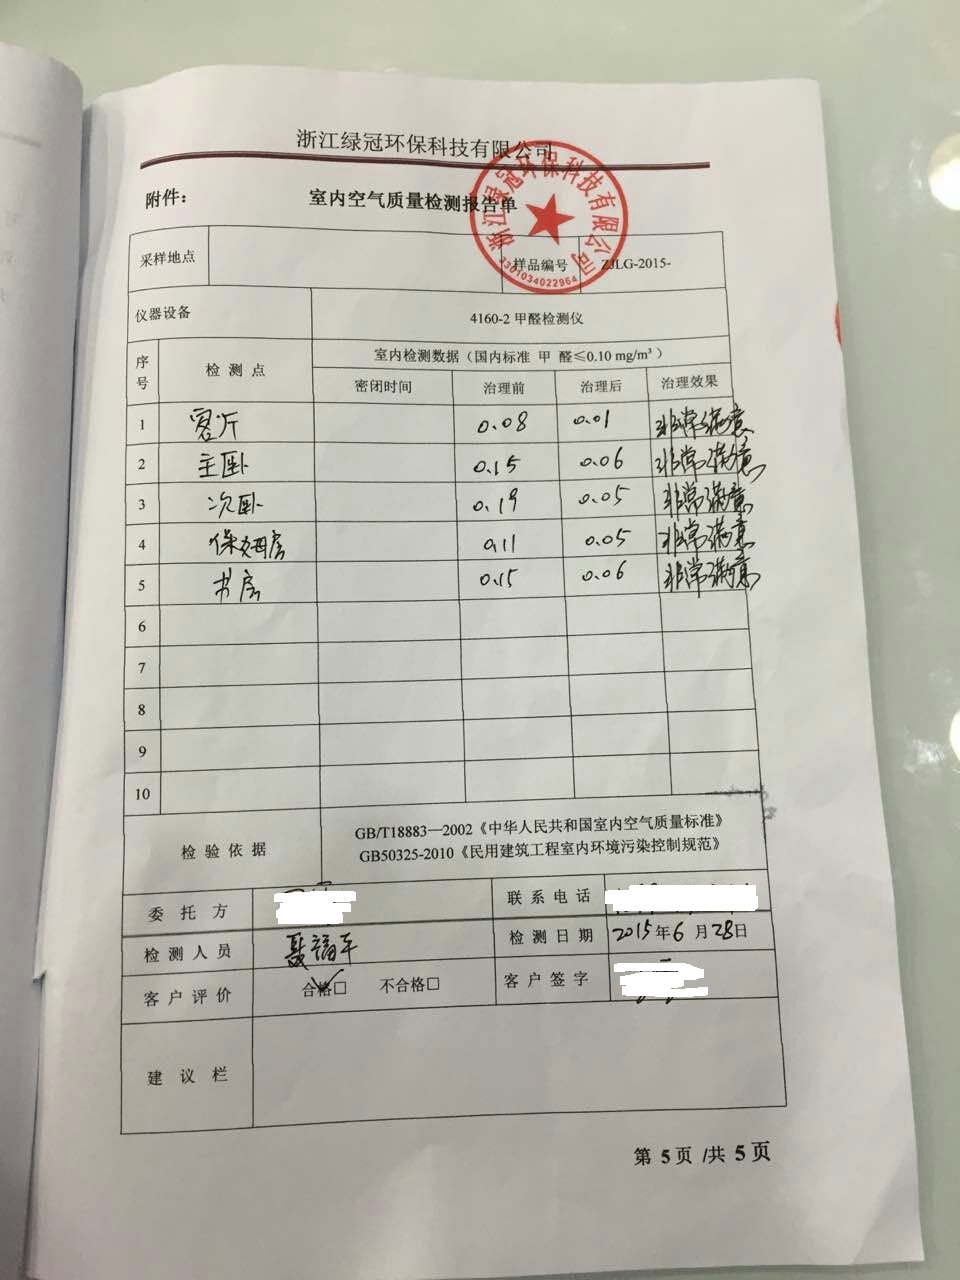 浙江绿冠环保科技有限公司
附件： 室内空气质量检测报告单
浙江绿冠环保科技有限公司
3301034022964
采样地点 样品编号 ZJLG-2015-
仪器设备 4160-2 甲醛检测仪
序号 检测点 室内检测数据（国内标准 甲 醛≤0.10 mg/m³）
密闭时间 治理前 治理后 治理效果
1 客厅 0.08 0.01 非常满意
2 主卧 0.15 0.06 非常满意
3 次卧 0.19 0.05 非常满意
4 保姆房 0.11 0.05 非常满意
5 书房 0.15 0.06 非常满意
6
7
8
9
10
检验依据 GB/T18883—2002《中华人民共和国室内空气质量标准》
GB50325-2010《民用建筑工程室内环境污染控制规范》
委托方 联系电话
检测人员 检测日期 2015年6月28日
客户评价 合格□ 不合格□ 客户签字
建议栏
第 5 页 /共 5 页